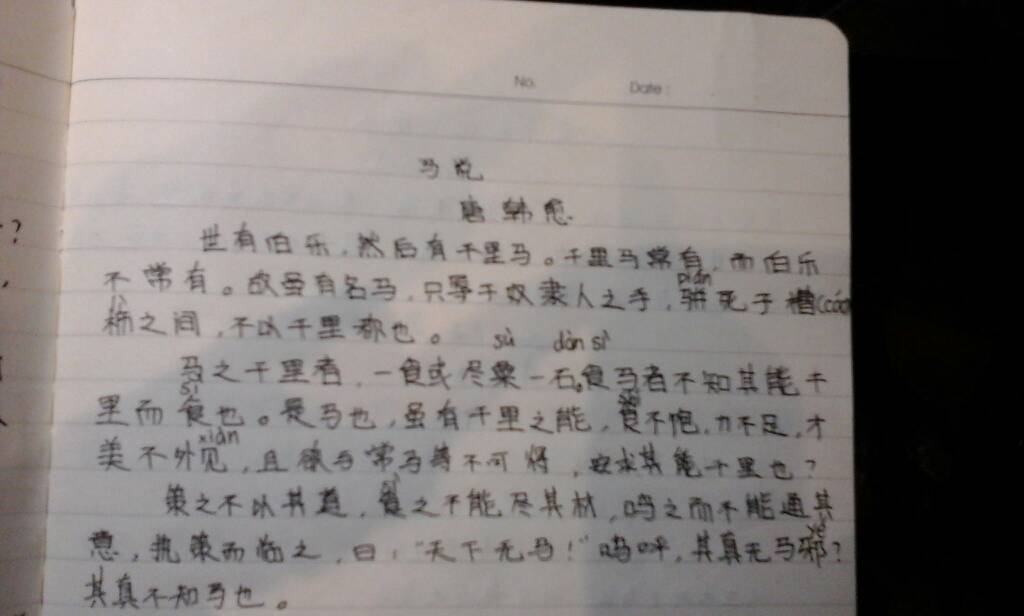 No. Date:
马说
唐 韩愈.
世有伯乐,然后有千里马。千里马常有,而伯乐
不常有。故虽有名马,只辱于奴隶人之手,骈(pián)死于槽(cáo)
枥之间,不以千里称也。
马之千里者,一食或尽粟(sù)一石(dàn)。食(sì)马者不知其能千
里而食(sì)也。是马也,虽有千里之能,食不饱,力不足,才
美不外见(xiàn),且欲与常马等不可得,安求其能千里也?
策之不以其道,食之不能尽其材,鸣之而不能通其
意,执策而临之,曰:“天下无马!”呜呼,其真无马邪(yé)?
其真不知马也。